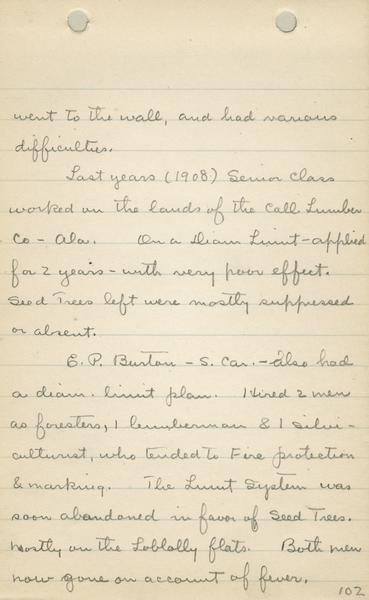 went to the wall, and had various
difficulties.
Last years (1908) Senior Class
worked on the lands of the Call Lumber
Co - Ala. On a Diam Limit - applied
for 2 years - with very poor effect.
Seed Trees left were mostly suppressed
or absent.
E. P. Burton - S. Car. - also had
a diam. limit plan. Hired 2 men
as foresters, 1 lumberman & 1 silvi-
culturist, who tended to Fire protection
& marking. The Limit System was
soon abandoned in favor of Seed Trees.
mostly on the Loblolly flats. Both men
now gone on account of fever.
102